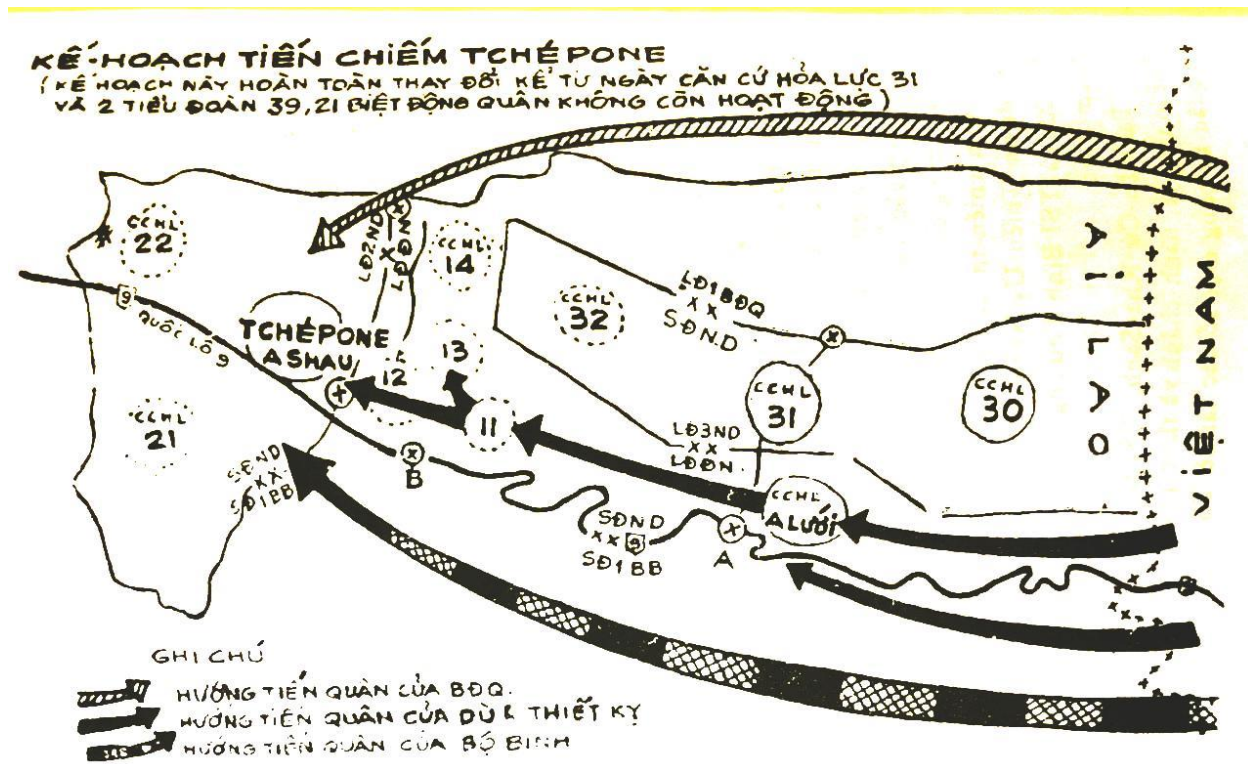 KẾ HOẠCH TIẾN CHIẾM TCHÉPONE
( KẾ HOẠCH NÀY HOÀN TOÀN THAY ĐỔI KỂ TỪ NGÀY CĂN CỨ HỎA LỰC 31
VÀ 2 TIỂU ĐOÀN 39, 21 BIỆT ĐỘNG QUÂN KHÔNG CÒN HOẠT ĐỘNG )
CCHL
22
LĐ2ND
XX
LĐDN
CCHL
14
CCHL
32
LĐ1BĐQ
XX
SĐN.D
ẢI LAO
VIỆT NAM
9
QUỐC LỘ 9
TCHÉPONE
ASHAU
12
13
11
CCHL
31
CCHL
30
CCHL
21
SĐND
XX
SĐ1BB
B
LĐ3ND
XX
LĐĐN.
CCHL
A LƯỚI
SĐND
XX 9
SĐ1BB
A
GHI CHÚ
HƯỚNG TIẾN QUÂN CỦA BĐQ.
HƯỚNG TIẾN QUÂN CỦA DÙ & THIẾT KỴ
HƯỚNG TIẾN QUÂN CỦA BỘ BINH